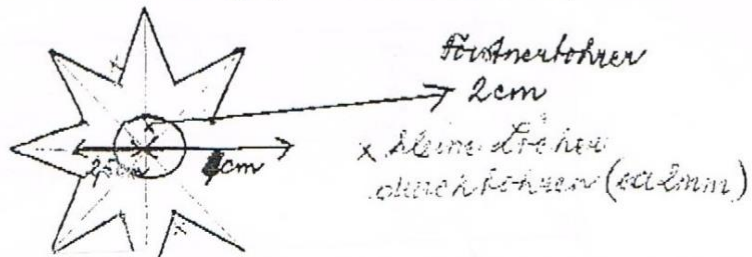 Forstnerbohrer
2cm
x kleine Löcher
durchbohren (ca 2mm)
cm